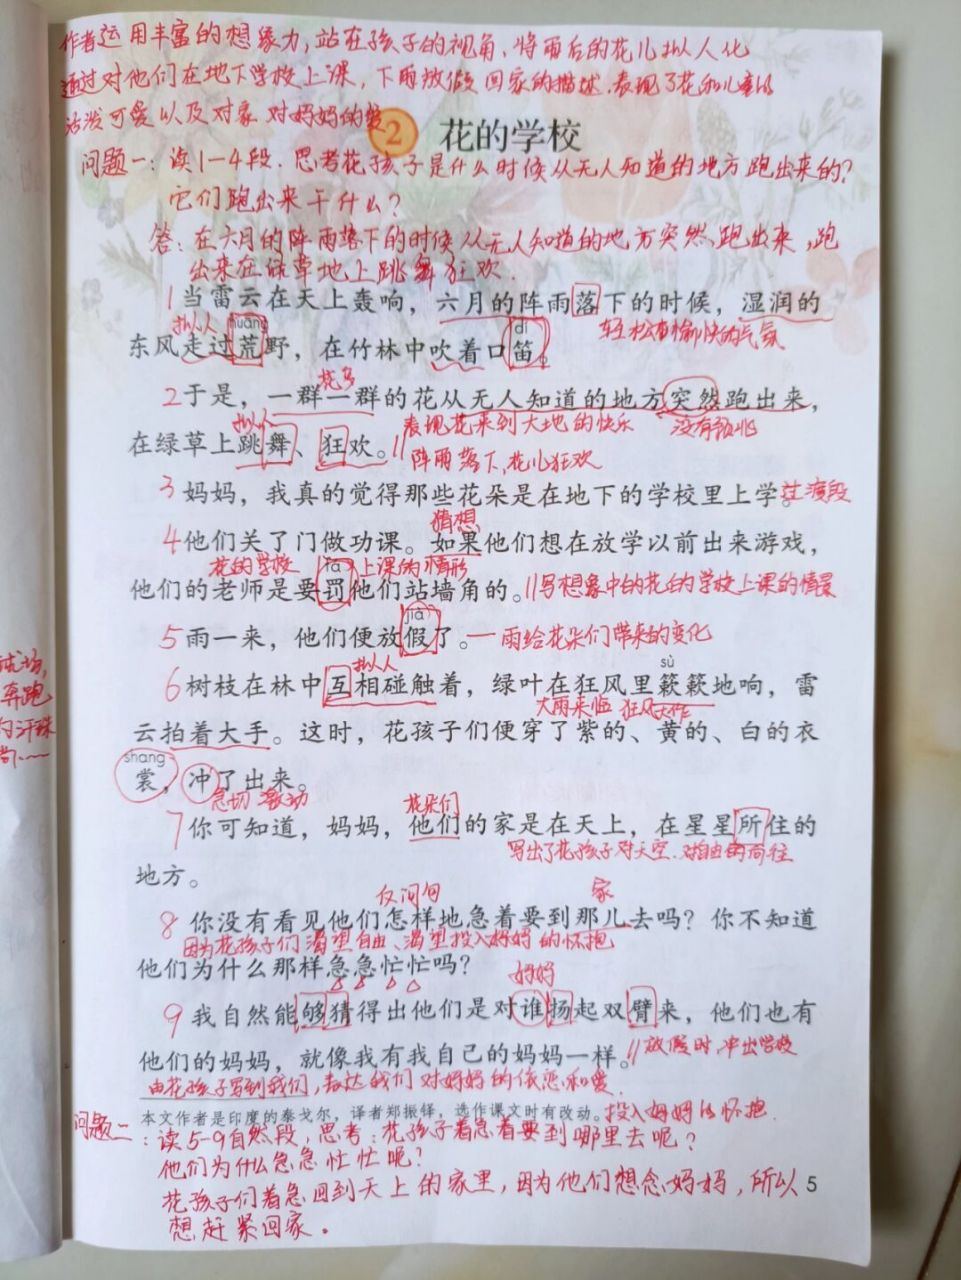 作者运用丰富的想象力,站在孩子的视角,将雨后的花儿拟人化
通过对他们在地下学校上课,下雨放假回家的描述,表现了花和儿童的
活泼可爱以及对家、对妈妈的爱
2 花的学校
问题一:读1-4段.思考花孩子是什么时候从无人知道的地方跑出来的?
它们跑出来干什么?
答:在六月的阵雨落下的时候从无人知道的地方突然跑出来,跑
出来在绿草地上跳舞狂欢.
1当雷云在天上轰响,六月的阵雨落下的时候,湿润的
拟人 huāng dí 轻松愉快的气氛
东风走过荒野,在竹林中吹着口笛。
花多
2于是,一群一群的花从无人知道的地方突然跑出来,
拟人 表现花来到大地的快乐 没有预兆
在绿草上跳舞、狂欢。//阵雨落下,花儿狂欢
3妈妈,我真的觉得那些花朵是在地下的学校里上学。过渡段
猜想
4他们关了门做功课。如果他们想在放学以前出来游戏,
花的学校 fá 上课的情形
他们的老师是要罚他们站墙角的。//写想象中的花的学校上课的情景
jià
5雨一来,他们便放假了。一雨给花朵们带来的变化
拟人 sù
6树枝在林中互相碰触着,绿叶在狂风里簌簌地响,雷
大雨来临 狂风大作
云拍着大手。这时,花孩子们便穿了紫的、黄的、白的衣
shang
裳,冲了出来。
急切 激动 花朵们
7你可知道,妈妈,他们的家是在天上,在星星所住的
写出了花孩子对天空.对自由的向往
地方。
反问句 家
8你没有看见他们怎样地急着要到那儿去吗?你不知道
因为花孩子们渴望自由、渴望投入妈妈的怀抱
他们为什么那样急急忙忙吗?
妈妈
9我自然能够猜得出他们是对谁扬起双臂来,他们也有
他们的妈妈,就像我有我自己的妈妈一样。//放假时,冲出学校
由花孩子写到我们,表达我们对妈妈的依恋和爱.
本文作者是印度的泰戈尔,译者郑振铎,选作课文时有改动。投入妈妈的怀抱.
问题二:读5-9自然段,思考:花孩子着急着要到哪里去呢?
他们为什么急急忙忙呢?
花孩子们着急回到天上的家里,因为他们想念妈妈,所以
想赶紧回家.
5
奔跑
汗珠